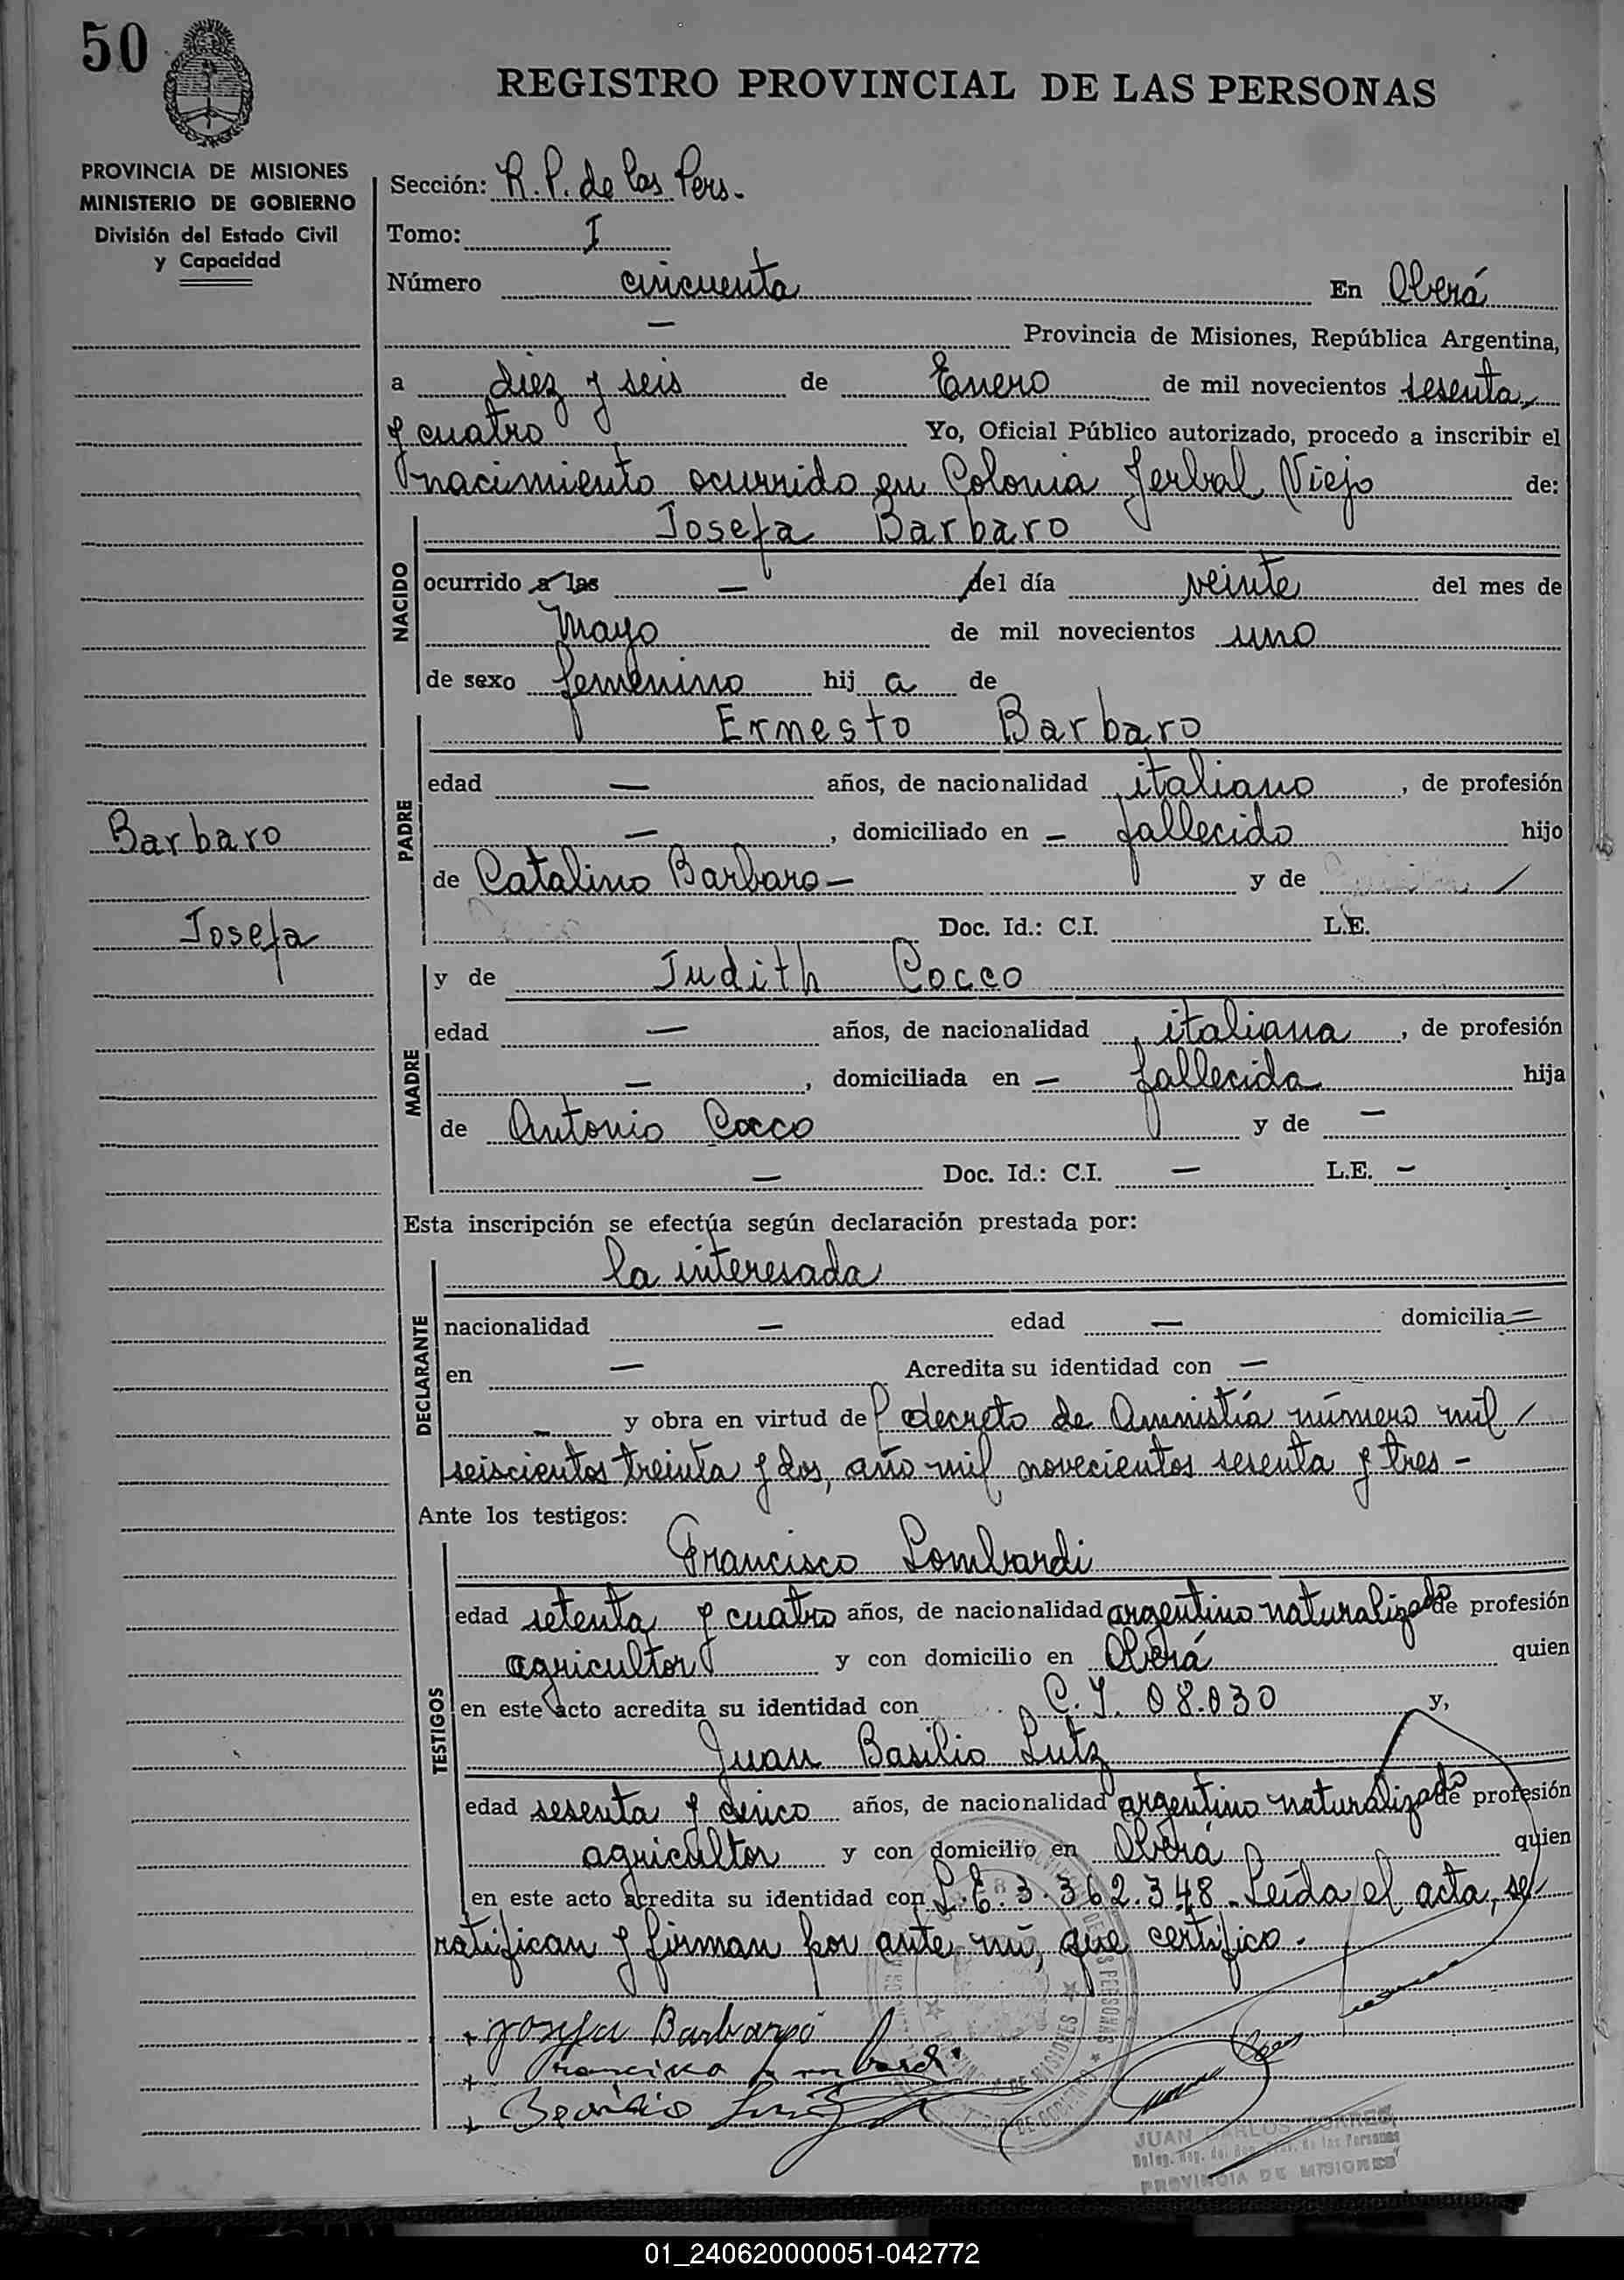 50
REGISTRO PROVINCIAL DE LAS PERSONAS
PROVINCIA DE MISIONES
MINISTERIO DE GOBIERNO
División del Estado Civil
y Capacidad
Sección: R. P. de las Pers.
Tomo: I
Número cincuenta En Oberá
— Provincia de Misiones, República Argentina,
a diez y seis de Enero de mil novecientos sesenta
y cuatro Yo, Oficial Público autorizado, procedo a inscribir el
nacimiento ocurrido en Colonia Yerbal Viejo de:
NACIDO
Josefa Barbaro
ocurrido a las — del día veinte del mes de
Mayo de mil novecientos uno
de sexo femenino hij a de
PADRE
Ernesto Barbaro
edad — años, de nacionalidad italiano, de profesión
—, domiciliado en — fallecido hijo
de Catalino Barbaro — y de /
Doc. Id.: C.I. L.E.
Barbaro
Josefa
MADRE
y de Judith Cocco
edad — años, de nacionalidad italiana, de profesión
—, domiciliada en — fallecida hija
de Antonio Cocco y de —
— Doc. Id.: C.I. — L.E. —
Esta inscripción se efectúa según declaración prestada por:
DECLARANTE
la interesada
nacionalidad — edad — domicilia =
en — Acredita su identidad con —
— y obra en virtud del decreto de Amnistía número mil /
seiscientos treinta y dos, año mil novecientos sesenta y tres -
Ante los testigos:
TESTIGOS
Francisco Lombardi
edad setenta y cuatro años, de nacionalidad argentino naturalizado de profesión
agricultor y con domicilio en Oberá quien
en este acto acredita su identidad con C. I. 08.030 y,
Juan Basilio Lutz
edad sesenta y cinco años, de nacionalidad argentino naturalizado de profesión
agricultor y con domicilio en Oberá quien
en este acto acredita su identidad con L. E. 3.362.348 - Leída el acta, se
ratifican y firman por ante mí, que certifico.
+ Josefa Barbaro
+ Francisco Lombardi
+ Basilio Lutz
JUAN CARLOS TORRES
PROVINCIA DE MISIONES
01_240620000051-042772